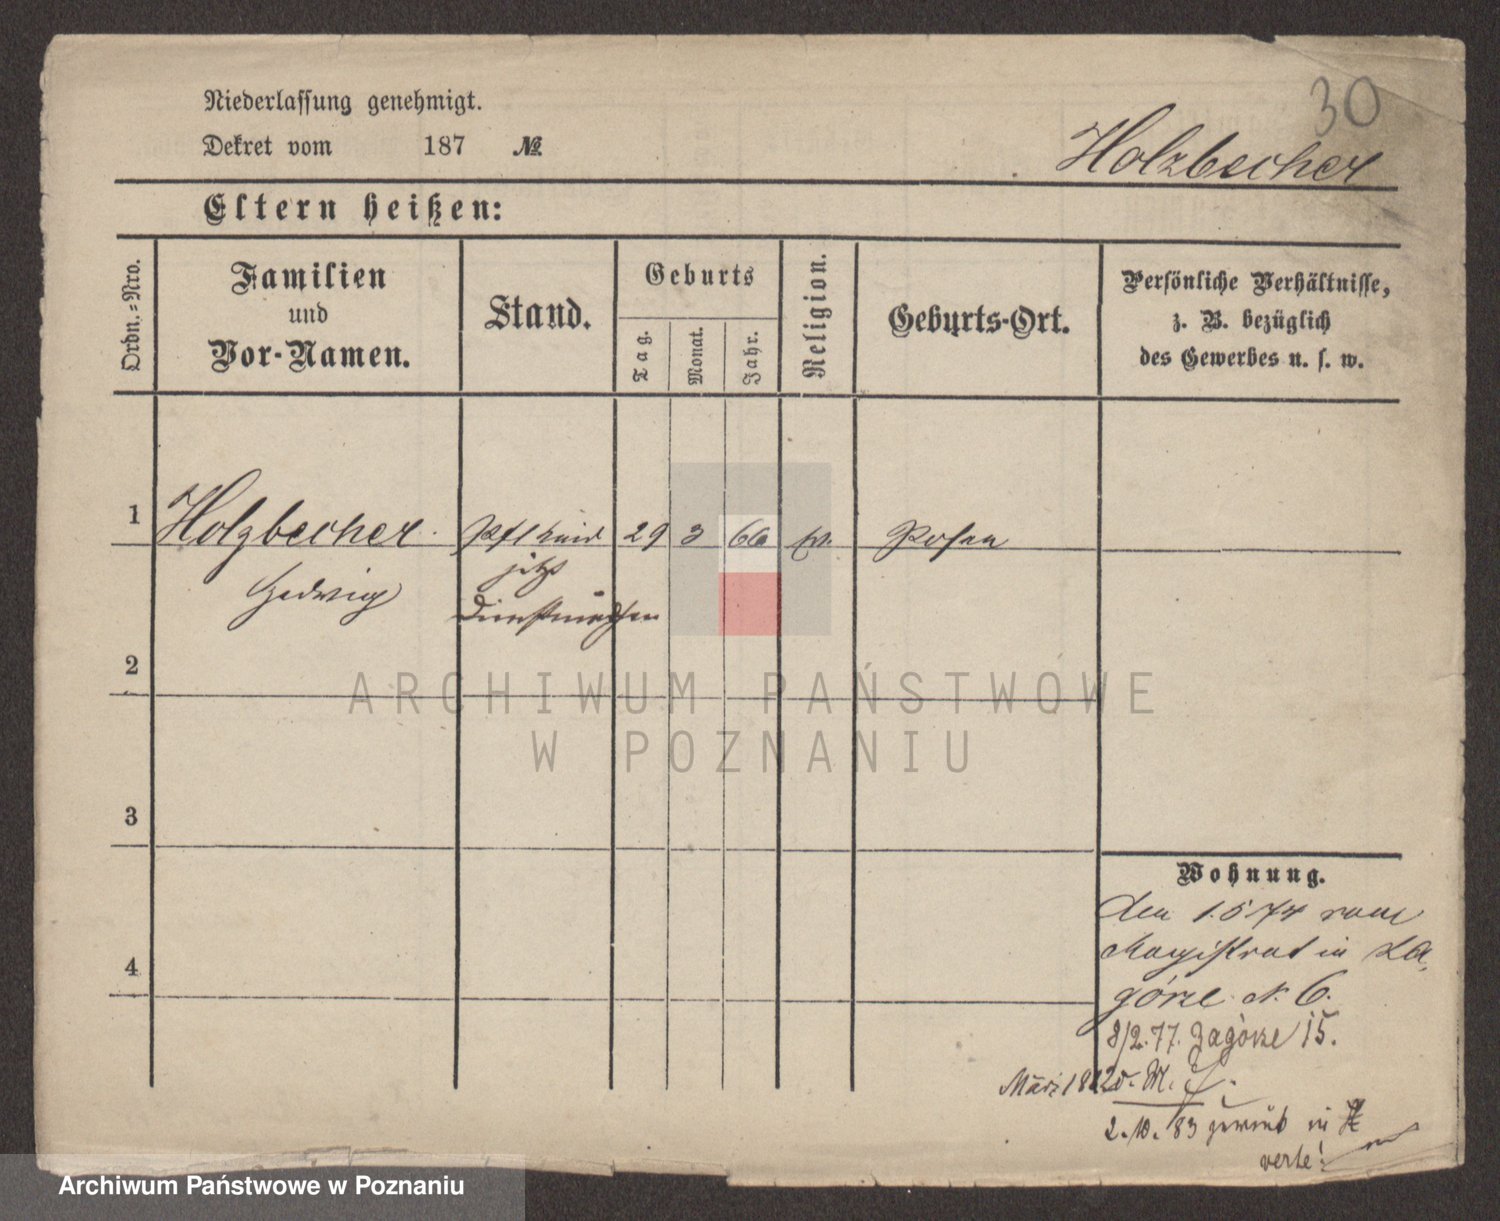 30
Niederlassung genehmigt.
Dekret vom 187 №
Holzbecher
Eltern heißen:
Ordn.-Nro.
Familien
und
Vor-Namen.
Stand.
Geburts
Tag.
Monat.
Jahr.
Religion.
Geburts-Ort.
Persönliche Verhältnisse,
z. B. bezüglich
des Gewerbes u. s. w.
1 Holzbecher Pflkind 29 3 66 Posen
Hedwig jetzt
Dienstmädchen
2
3
4
Wohnung.
den 1.5 74 vom
Magistrat in Za-
górze N. 6.
8/2.77. Zagórze 15.
März 1882
2.10.83 in
verte!
ARCHIWUM PAŃSTWOWE
W POZNANIU
Archiwum Państwowe w Poznaniu